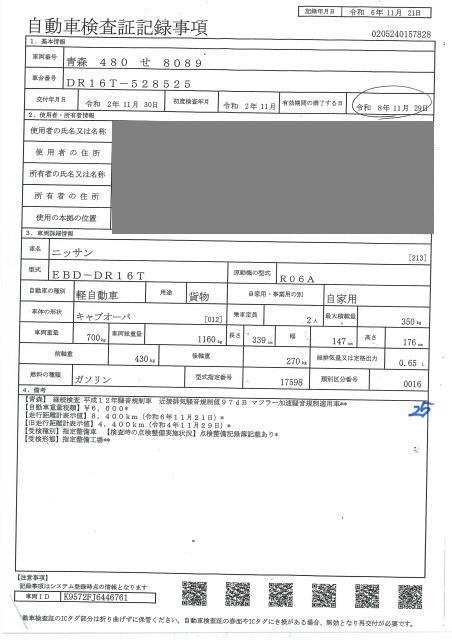 記録年月日 令和 6年11月 21日
自動車検査証記録事項
0205240157828
1. 基本情報
車両番号 青森 480 せ 8089
車台番号 DR16T-528525
交付年月日 令和 2年11月 30日 初度検査年月 令和 2年11月 有効期間の満了する日 令和 8年11月 29日
2. 使用者・所有者情報
使用者の氏名又は名称
使用者の住所
所有者の氏名又は名称
所有者の住所
使用の本拠の位置
3. 車両詳細情報
車名 ニッサン [213]
型式 EBD-DR16T 原動機の型式 R06A
自動車の種別 軽自動車 用途 貨物 自家用・事業用の別 自家用
車体の形状 キャブオーバ [012] 乗車定員 2人 最大積載量 350kg
車両重量 700kg 車両総重量 1160kg 長さ 339cm 幅 147cm 高さ 176cm
前軸重 430kg 後軸重 270kg 総排気量又は定格出力 0.65 L
燃料の種類 ガソリン 型式指定番号 17598 類別区分番号 0016
4. 備考
【青森】 継続検査 平成12年騒音規制車 近接排気騒音規制値97dB マフラー加速騒音規制適用車**
【自動車重量税額】¥6,600*
【走行距離計表示値】8,400km(令和6年11月21日)*
【旧走行距離計表示値】4,400km(令和4年11月29日)*
【受検種別】指定整備車 【検査時の点検整備実施状況】点検整備記録簿記載あり*
【受検形態】指定整備工場**
25
【注意事項】
記録事項はシステム登録時点の情報となります
車両ID K9572FJ6446761
自動車検査証のICタグ部分は折り曲げずに保管ください。自動車検査証の券面やICタグにき損がある場合、無効となり再交付が必要です。